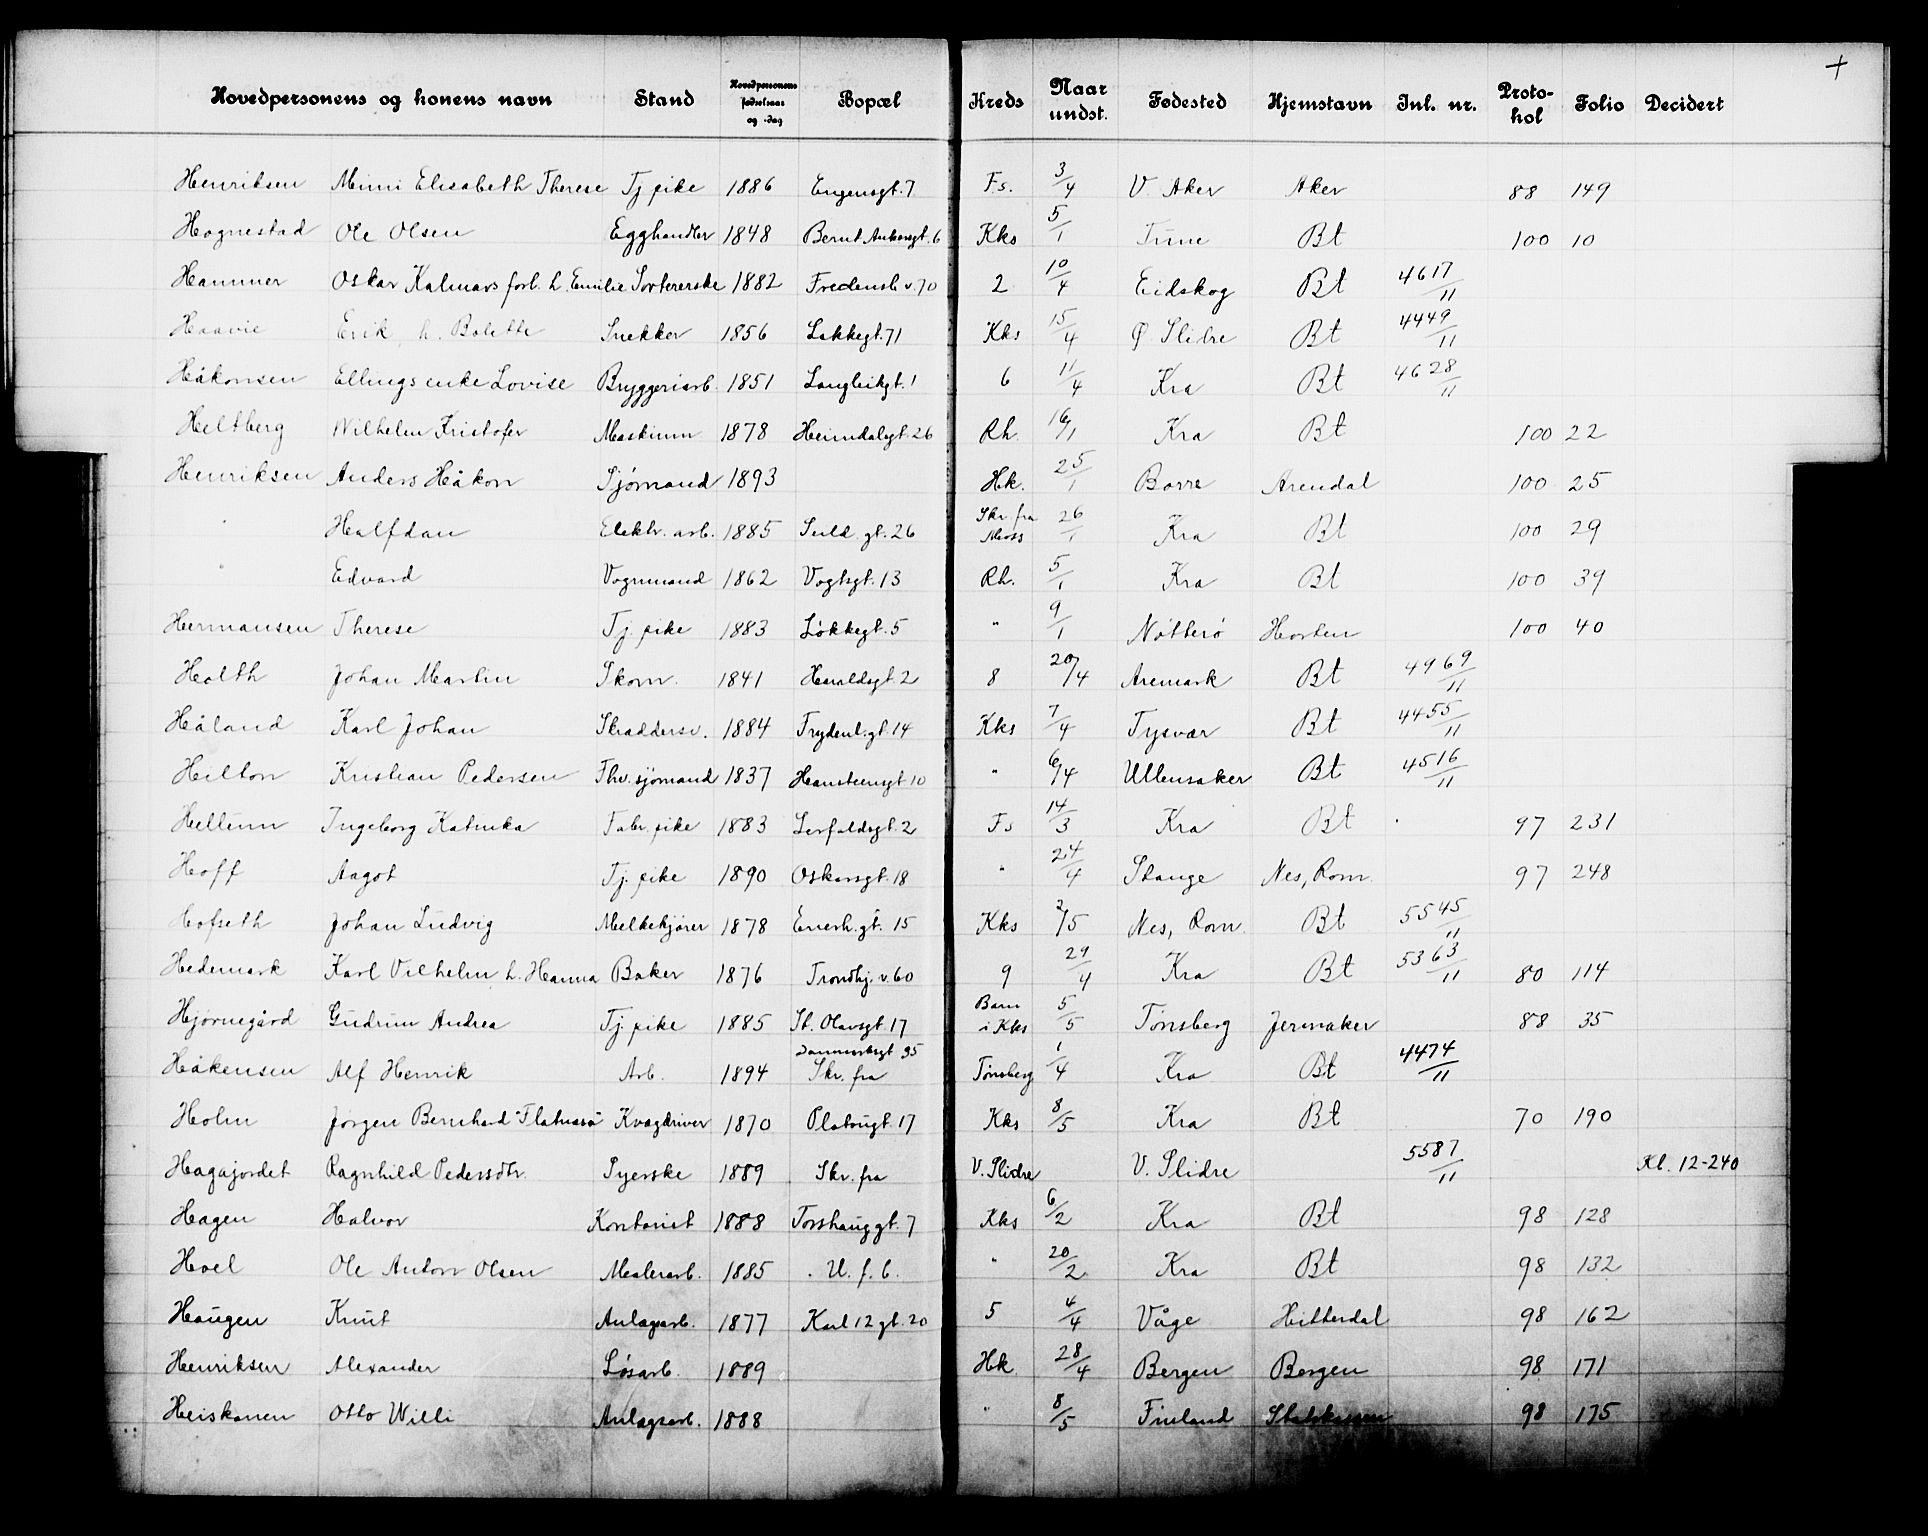 +
Hovedpersonens og konens navn Stand Hovedpersonens fødselsaar og -dag Bopæl Kreds Naar undst. Fødested Hjemstavn Inl. nr. Protokol Folio Decidert
Henriksen Mimi Elisabeth Therese Tj. pike 1886 Eugensgt. 7 Fs. 3/4 V. Aker Aker 88 149
Hognestad Ole Olsen Egghandler 1848 Bernt Ankersgt. 6 Kks 5/1 Time Bt 100 10
Hammer Oskar Kalmars forl. h. Emilie Sortererske 1882 Fredensb.v. 70 2 10/4 Eidskog Bt 4617/11
Haavie Erik, h. Bolette Snekker 1856 Lakkegt. 71 Kks 15/4 Ø. Slidre Bt 4449/11
Håkonsen Ellings enke Lovise Bryggeriarb. 1851 Langleikgt. 1 6 11/4 Kra Bt 4628/11
Heltberg Wilhelm Kristofer Maskinm 1878 Heimdalsgt. 26 Rh. 16/1 Kra Bt 100 22
Henriksen Anders Håkon Sjømand 1893 Hk. 25/1 Borre Arendal 100 25
" Halfdan Elektr. arb. 1885 Suld. gt. 26 Skr. fra Moss 26/1 Kra Bt 100 29
" Edvard Vognmand 1862 Vogtsgt. 13 Rh. 5/1 Kra Bt 100 39
Hermansen Therese Tj. pike 1883 Løkkegt. 5 " 9/1 Nøtterø Horten 100 40
Holth Johan Martin Skom. 1841 Heraldsgt. 2 8 20/4 Aremark Bt 4969/11
Håland Karl Johan Skraddersv. 1884 Frydenl.gt. 14 Kks 7/4 Tysvær Bt 4455/11
Hilton Kristian Pedersen Fhv. sjømand 1837 Hansteensgt. 10 " 6/4 Ullensaker Bt 4516/11
Hellum Ingeborg Katinka Fabr. pike 1883 Lerfaldsgt. 2 Fs 14/3 Kra Bt 97 231
Hoff Aagot Tj. pike 1890 Oskarsgt. 18 " 24/4 Stange Nes, Rom. 97 248
Hofseth Johan Ludvig Melkekjører 1878 Enerh.gt. 15 Kks 2/5 Nes, Rom. Bt 5545/11
Hedemark Karl Vilhelm h. Hanna Baker 1876 Trondhj.v. 60 9 29/4 Kra Bt 5363/11 80 114
Hjørnegård Gudrun Andrea Tj. pike 1885 St. Olavsgt. 17 Barn i Kks 5/5 Tønsberg Jernaker 88 35
Håkensen Alf Henrik Arb. 1894 Dannevirksgt 35 Skr. fra Tønsberg 1/4 Kra Bt 4474/11
Holm Jørgen Bernhard "Flatnæsø" Kvægdriver 1870 Platougt. 17 Kks 8/5 Kra Bt 70 190
Hagajordet Ragnhild Pedersdtr. Syerske 1889 Skr. fra V. Slidre V. Slidre 5587/11 Kl. 12-240
Hagen Halvor Kontorist 1888 Torshauggt. 7 Kks 6/2 Kra Bt 98 128
Hoel Ole Anton Olsen Malerarb. 1885 U. f. b. " 20/2 Kra Bt 98 132
Haugen Knut Anlægsarb. 1877 Karl 12 gt. 20 5 4/4 Våge Hitterdal 98 162
Henriksen Alexander Løsarb. 1889 Hk. 28/4 Bergen Bergen 98 171
Heiskanen Otto Willi Anlægsarb. 1888 " 8/5 Finland Statskassen 98 175